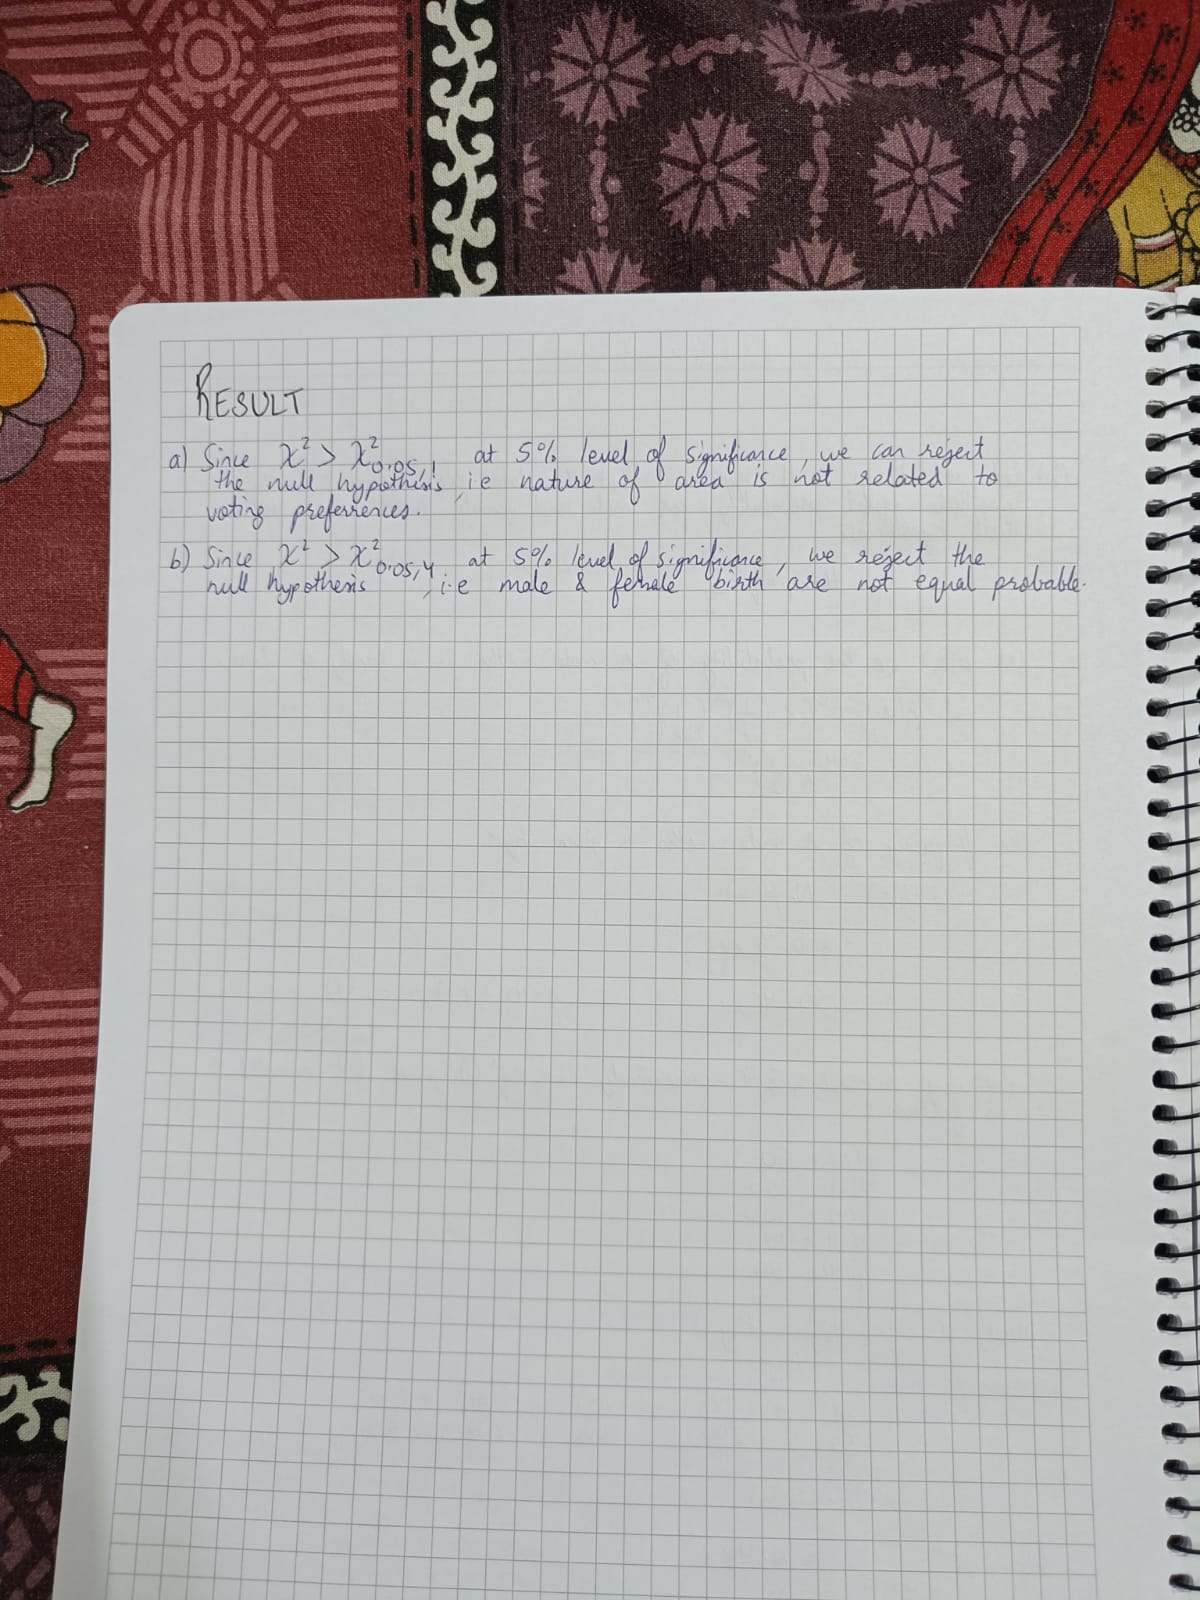 RESULT
a) Since χ² > χ²0.05,1 at 5% level of significance, we can reject
the null hypothesis, i.e nature of area is not related to
voting preferrences.
b) Since χ² > χ²0.05,4 at 5% level of significance, we reject the
null hypothesis, i.e male & female birth are not equal probable.